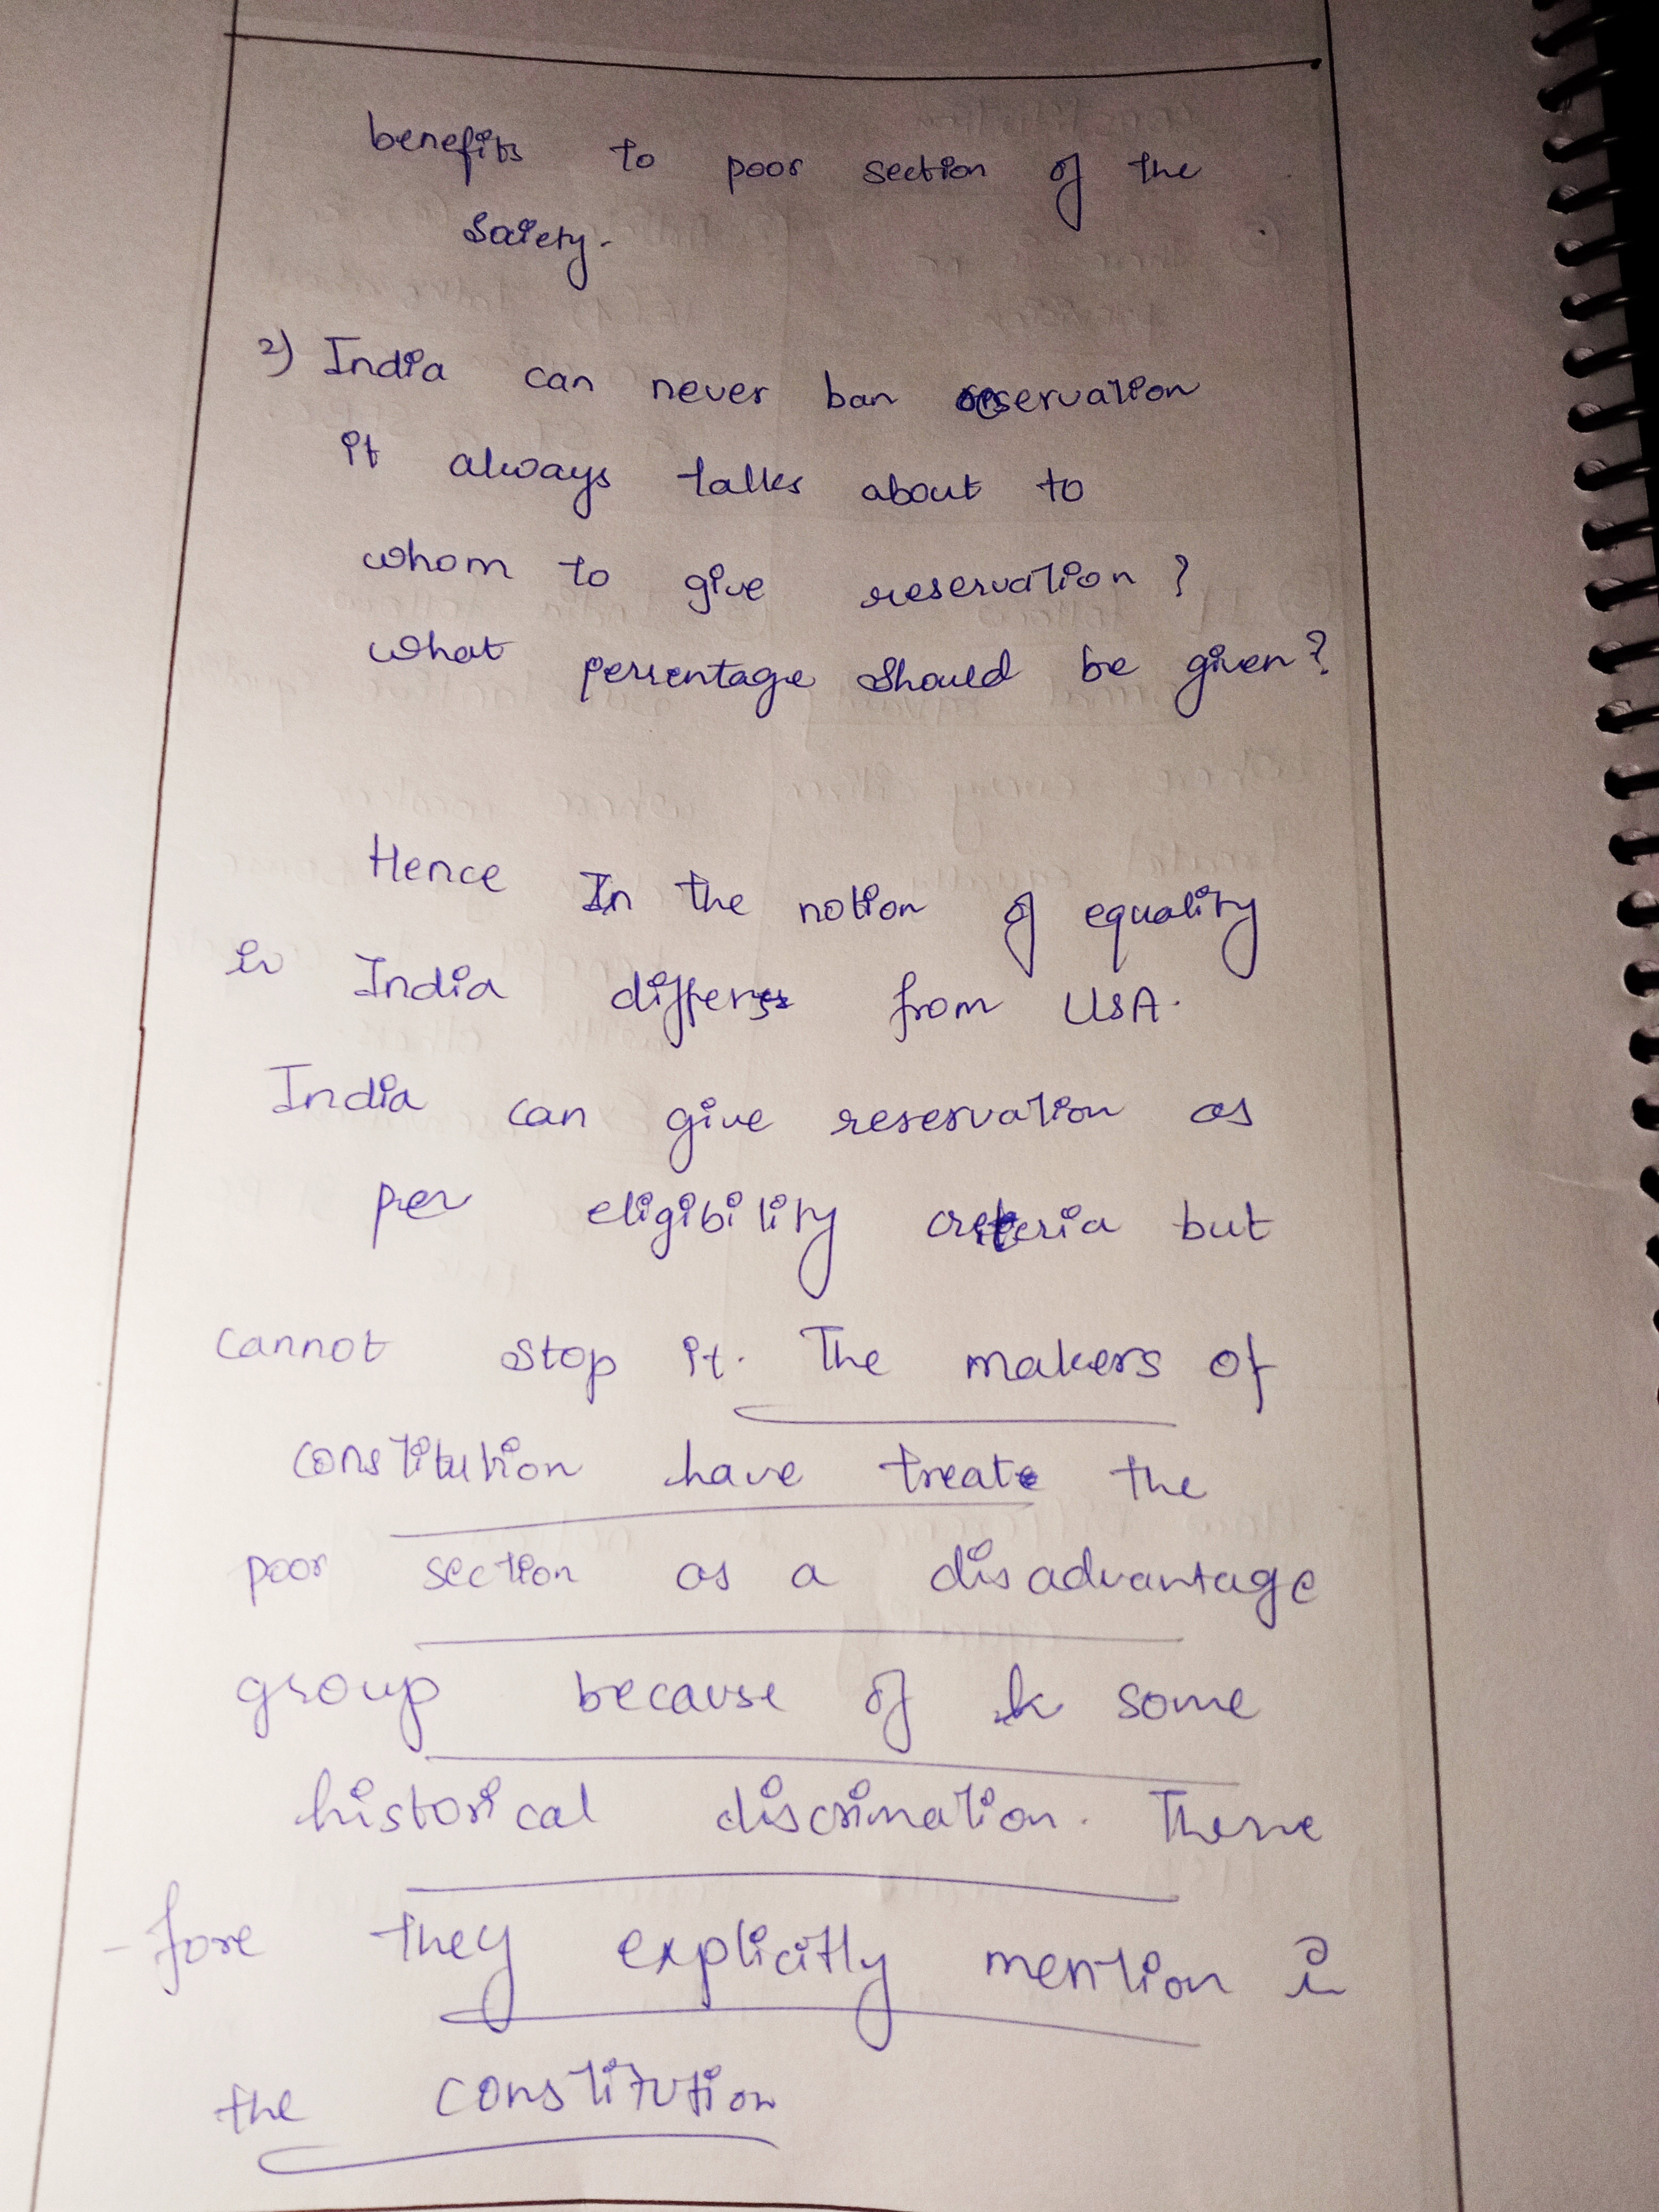 benefits to poor section of the
Saiety.
2) India can never ban reservation
it always talks about to
whom to give reservation ?
what percentage should be given?
Hence In the notion of equality
in India differs from USA.
India can give reservation as
per eligibility criteria but
cannot stop it. The makers of
constitution have treate the
poor section as a disadvantage
group because of some
historical discrimation. There
-fore they explicitly mention in
the constitution